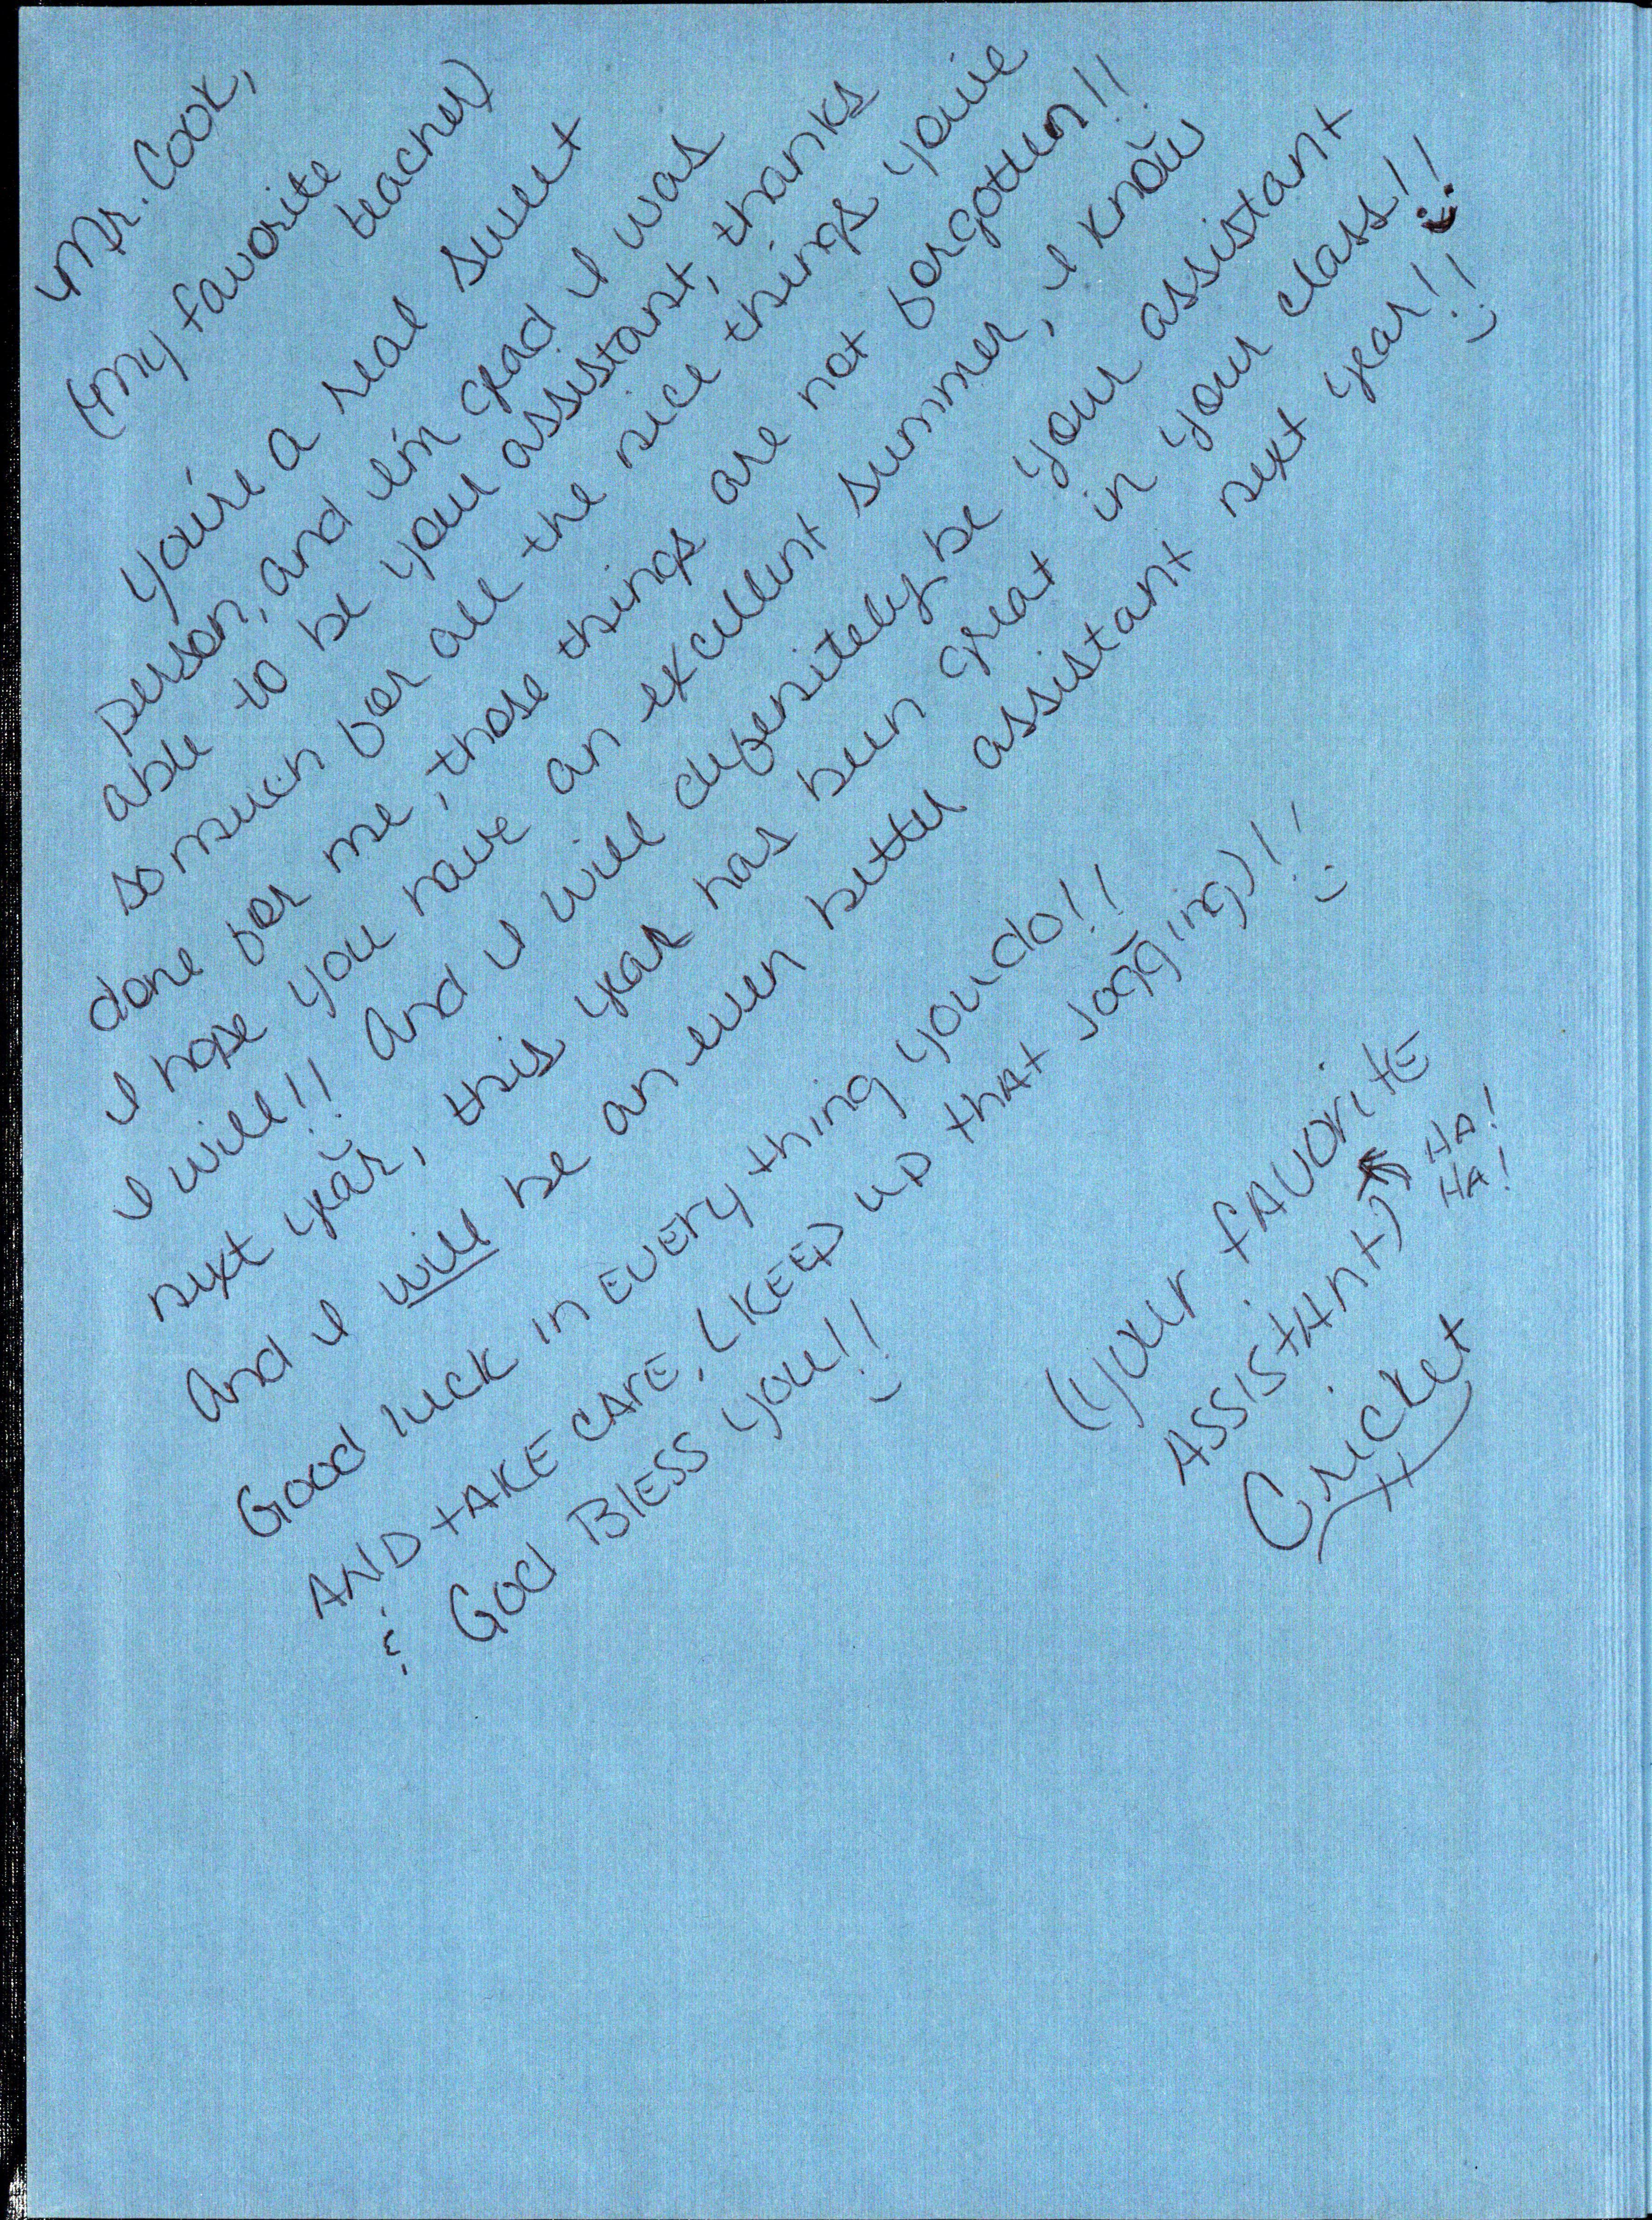 Mr. Cook,
(my favorite
teacher)
You're a real sweet
person, and I'm glad I was
able to be your assistant, thanks
so much for all the nice things you've
done for me, those things are not forgotten!!
I hope you have an excellent summer, I know
I will!! And I will definitely be your assistant
next year, this year has been great in your class!!
And I will be an even better assistant next year!!
Good luck in EVERY thing you do!!
AND tAKE CARE, (KEEP UP thAt Jogging)!!
& God BlESS you!!
(your fAVoritE
ASSIStAnt)
HA!
HA!
Cricket